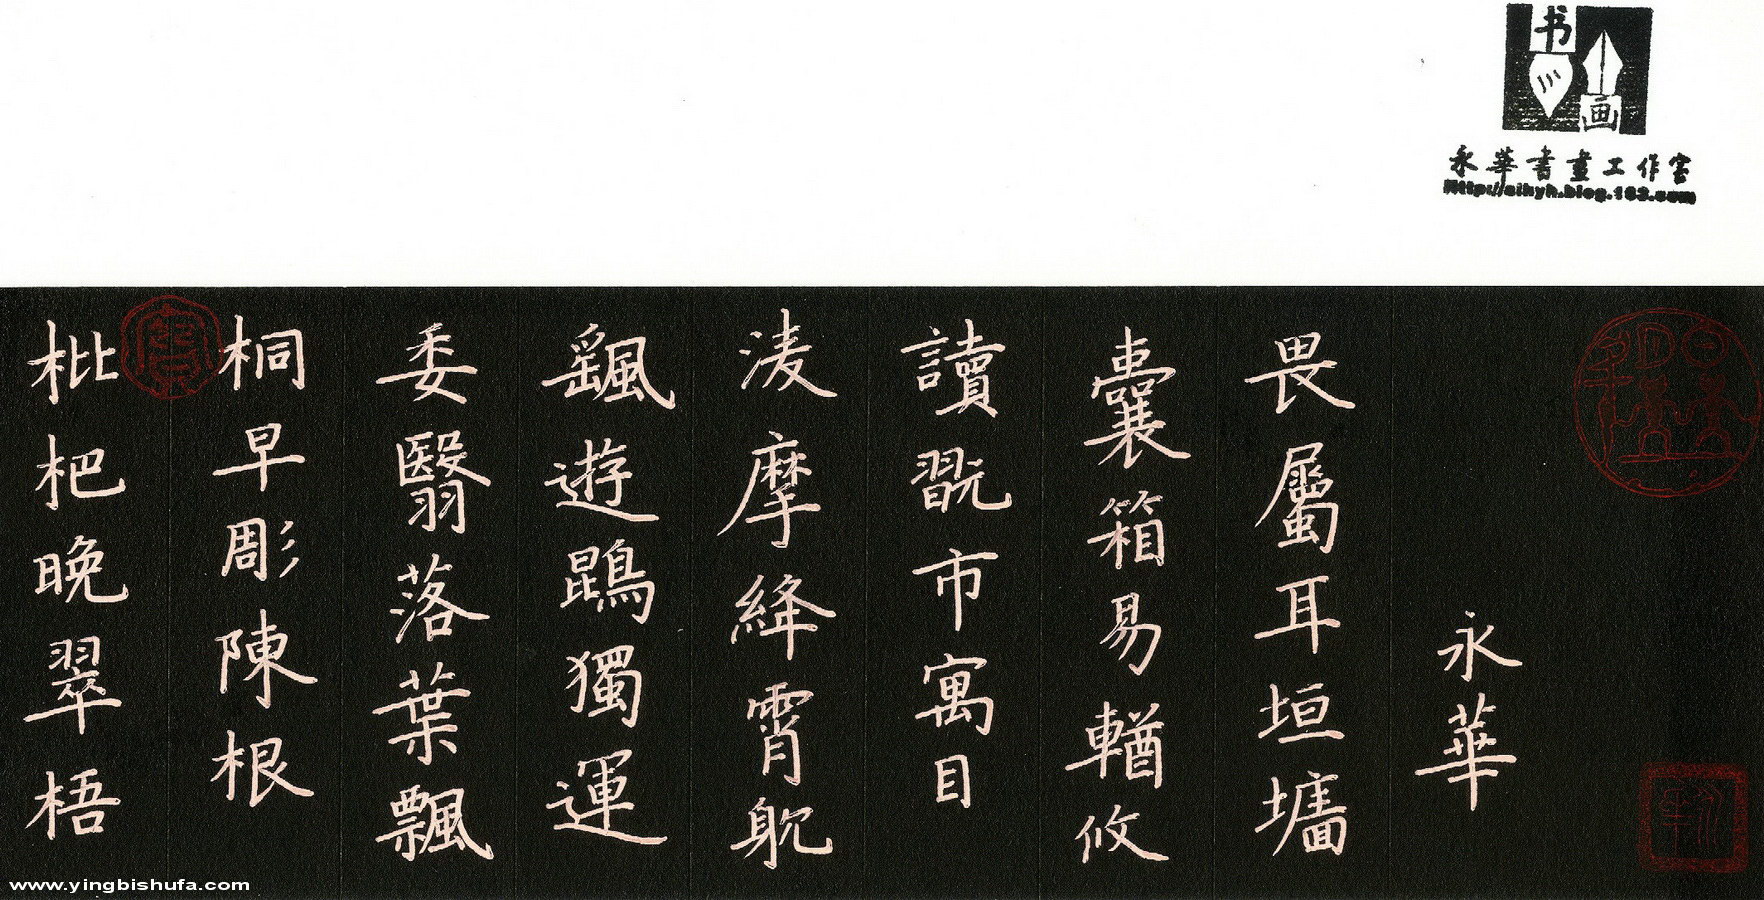 书画
永華書畫工作室
枇杷晚翠梧
桐早彫陳根
委翳落葉飄
颻遊鵾獨運
淩摩絳霄躭
讀翫市寓目
囊箱易輶攸
畏屬耳垣墻
永華
www.yingbishufa.com